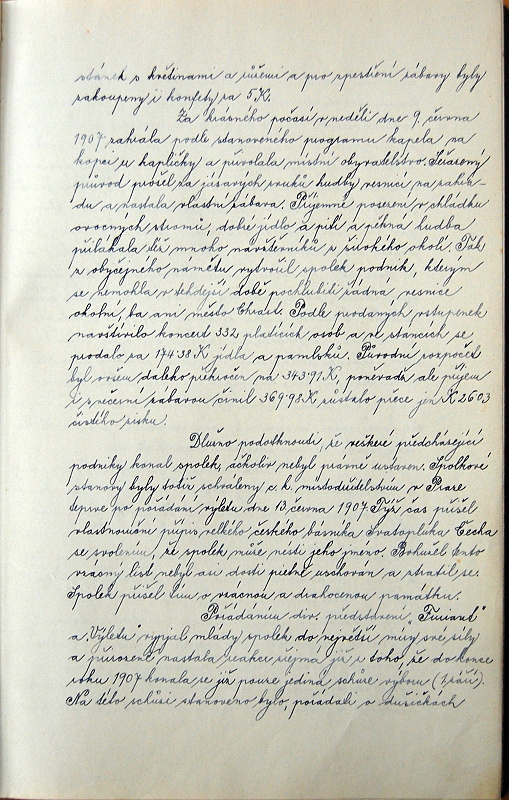 stánek s květinami a růžemi a pro zpestření zábavy byly
zakoupeny i konfety za 5 K.
Za krásného počasí v neděli dne 9. června
1907 zahrála podle stanoveného programu kapela na
kopci u kapličky a přivolala místní obyvatelstvo. Seřazený
průvod prošel za jásavých zvuků hudby vesnicí na zahra-
du a nastala vlastní zábava. Příjemné posezení v chládku
ovocných stromů, dobré jídlo a pití a pěkná hudba
přilákala též mnoho návštěvníků z širokého okolí. Tak
z obyčejného námětu vytvořil spolek podnik, kterým
se nemohla v tehdejší době pochlubiti žádná vesnice
okolní, ba ani město Chrast. Podle prodaných vstupenek
navštívilo koncert 332 platících osob a ve stáncích se
prodalo za 174·38 K jídla a pamlsků. Původní rozpočet
byl ovšem daleko překročen na 343·91 K, poněvadž ale příjem
i s večerní zábavou činil 369·98 K zůstalo přece jen K 26·03
čistého zisku.
Dlužno podotknouti, že veškeré předcházející
podniky konal spolek, ačkoliv nebyl právně ustaven. Spolkové
stanovy byly totiž schváleny c. k. místodržitelstvím v Praze
teprve po pořádání výletu dne 13. června 1907. Týž čas přišel
vlastnoruční přípis velkého českého básníka Svatopluka Čecha
se svolením, že spolek může nésti jeho jmeno. Bohužel tento
vzácný list nebyl asi dosti pietně uschován a ztratil se.
Spolek přišel tím o vzácnou a drahocenou památku.
Pořádáním div. představení "Furiant"
a "Výletu" vypjal mladý spolek do největší míry své síly
a přirozeně nastala reakce zřejmá již z toho, že do konce
roku 1907 konala se již pouze jediná schůze výboru (1. září).
Na této schůzi stanoveno bylo, pořádati o dušičkách